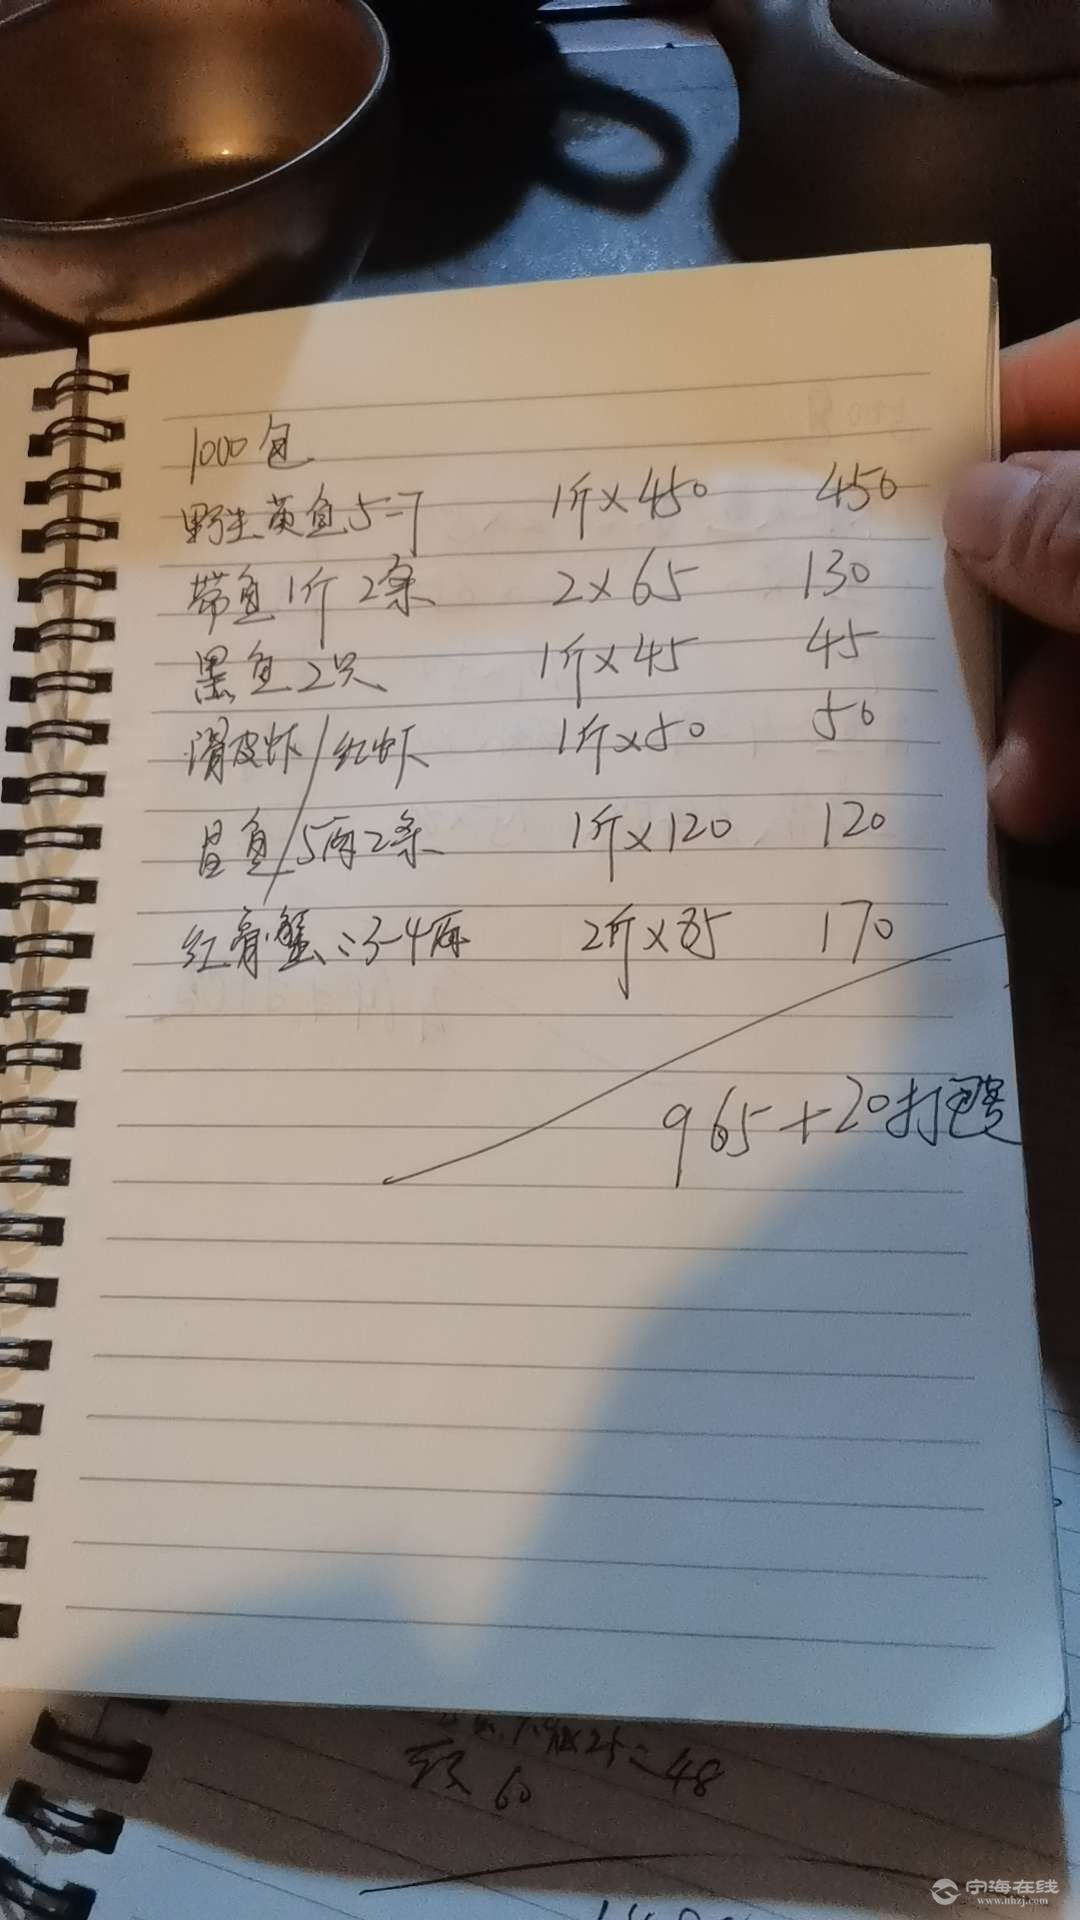 1000包
野生黄鱼5=7 1斤×450 450
带鱼1斤2条 2×65 130
黑鱼2只 1斤×45 45
滑皮虾/红虾 1斤×50 50
昌鱼/5两2条 1斤×120 120
红膏蟹:3-4两 2斤×85 170
965+20打包
25=48
60
宁海在线
www.nhzj.com